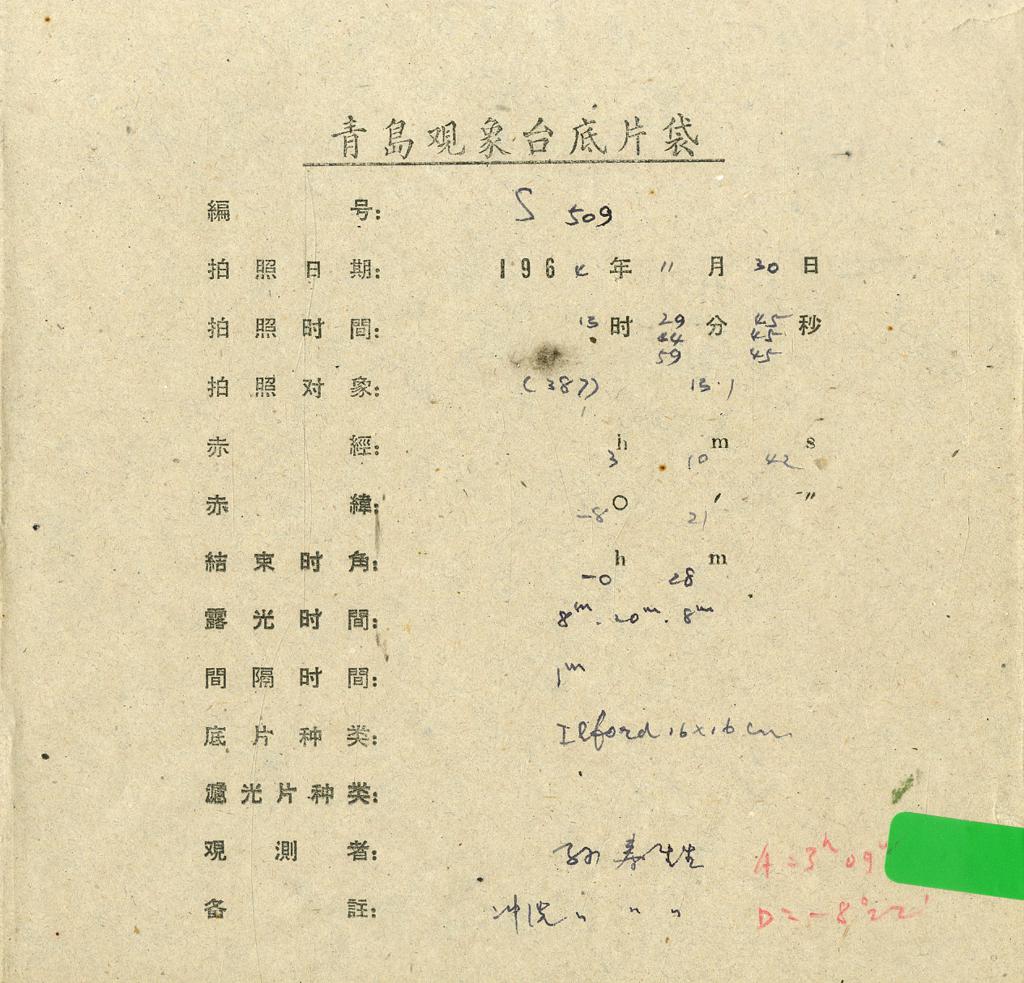 青島观象台底片袋
編号: S 509
拍照日期: 1964年 11月 30日
拍照时間: 13时 29分 45秒
44 45
59 45
拍照对象: (387) 13.1
赤經: 3h 10m 42s
赤緯: -8° 21′ ″
結束时角: -0h 28m
露光时間: 8m. 20m. 8m
間隔时間: 1m
底片种类: Ilford 16x16 cm
濾光片种类:
观測者: 孙寿 A=3h 09
备註: 冲洗 " " " D=-8°22′